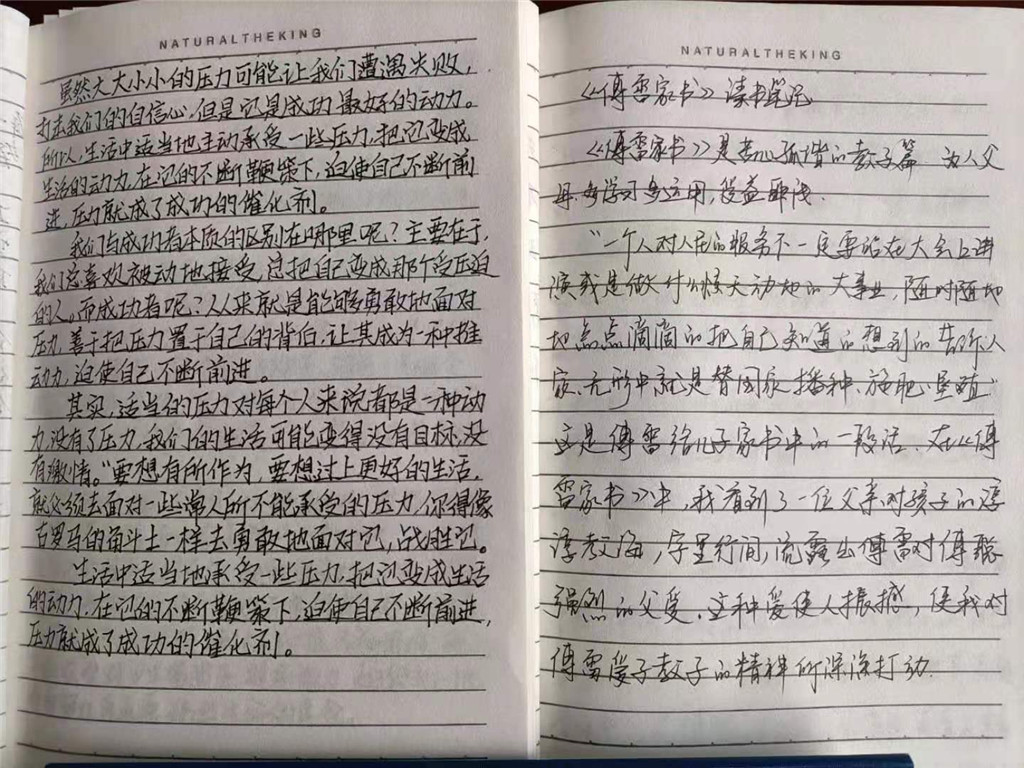 NATURALTHEKING
虽然大大小小的压力可能让我们遭遇失败,
打击我们的自信心,但是它是成功最好的动力。
所以,生活中适当地主动承受一些压力,把它变成
生活的动力,在它的不断鞭策下,迫使自己不断前
进,压力就成了成功的催化剂。
我们与成功者本质的区别在哪里呢?主要在于,
我们总喜欢被动地接受,总把自己变成那个受压迫
的人。而成功者呢?从来就是能够勇敢地面对
压力,善于把压力置于自己的背后,让其成为一种推
动力,迫使自己不断前进。
其实,适当的压力对每个人来说都是一种动
力,没有了压力,我们的生活可能变得没有目标,没
有激情。"要想有所作为,要想过上更好的生活,
就必须去面对一些常人所不能承受的压力,你得像
古罗马的角斗士一样去勇敢地面对它,战胜它。
生活中适当地承受一些压力,把它变成生活
的动力,在它的不断鞭策下,迫使自己不断前进,
压力就成了成功的催化剂。
NATURALTHEKING
《傅雷家书》读书笔记
《傅雷家书》是苦心孤诣的教子篇,为人父
母,多学习多运用,受益匪浅.
"一个人对人民的服务不一定要站在大会上讲
演或是做什么惊天动地的大事业,随时随地
地点点滴滴的把自己知道的想到的告诉人
家,无形中就是替国家播种、施肥、垦殖,
这是傅雷给儿子家书中的一段话.在《傅
雷家书》中,我看到了一位父亲对孩子的谆
谆教诲,字里行间,流露出傅雷对傅聪
强烈的父爱.这种爱使人振撼,使我对
傅雷爱子教子的精神所深深打动.